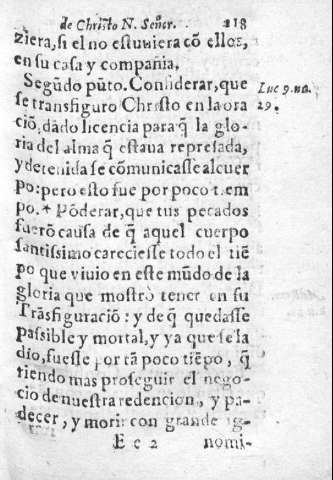 de Christo N. Señor. 218
ziera, si el no estuuiera cõ ellos,
en su casa y compañia.
Segũdo pũto. Considerar, que
se transfiguro Christo en la ora
ciõ, dãdo licencia para q̃ la glo-
ria del alma q̃ estaua represada,
y detenida se cõmunicasse al cuer
po: pero esto fue por poco tiem
po. * Põderar, que tus pecados
fuerõ causa de q̃ aquel cuerpo
santissimo careciesse todo el tiẽ
po que viuio en este mũdo de la
gloria que mostrò tener en su
Trãsfiguraciõ: y de q̃ quedasse
passible y mortal, y ya que se la
dio, fuesse por tã poco tiẽpo, q̃
riendo mas proseguir el nego-
cio de nuestra redencion, y pa-
decer, y morir con grande ig-
E e 2 nomi-
Luc 9. nu.
29.